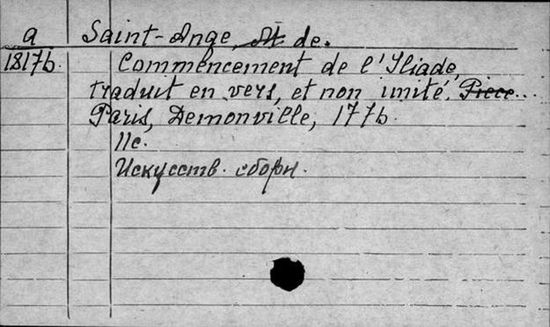 a Saint-Ange, de.
18176. Commencement de l'Iliade,
traduit en vers, et non imité. Piece...
Paris, Demonville, 1776.
11c.
Искусств. сборн.